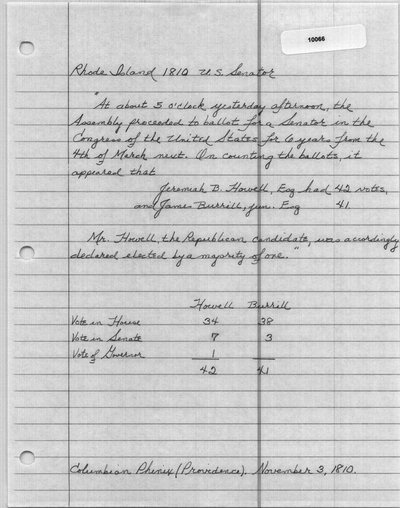 10066
Rhode Island 1810 U.S. Senator
"At about 5 o'clock yesterday afternoon, the
Assembly proceeded to ballot for a Senator in the
Congress of the United States for 6 years from the
4th of March next. On counting the ballots, it
appeared that
Jeremiah B. Howell, Esq had 42 votes,
and James Burrill, jun. Esq 41.
Mr. Howell, the Republican candidate, was accordingly
declared elected by a majority of one."
Howell Burrill
Vote in House 34 38
Vote in Senate 7 3
Vote of Governor 1
42 41
Columbian Phenix (Providence). November 3, 1810.